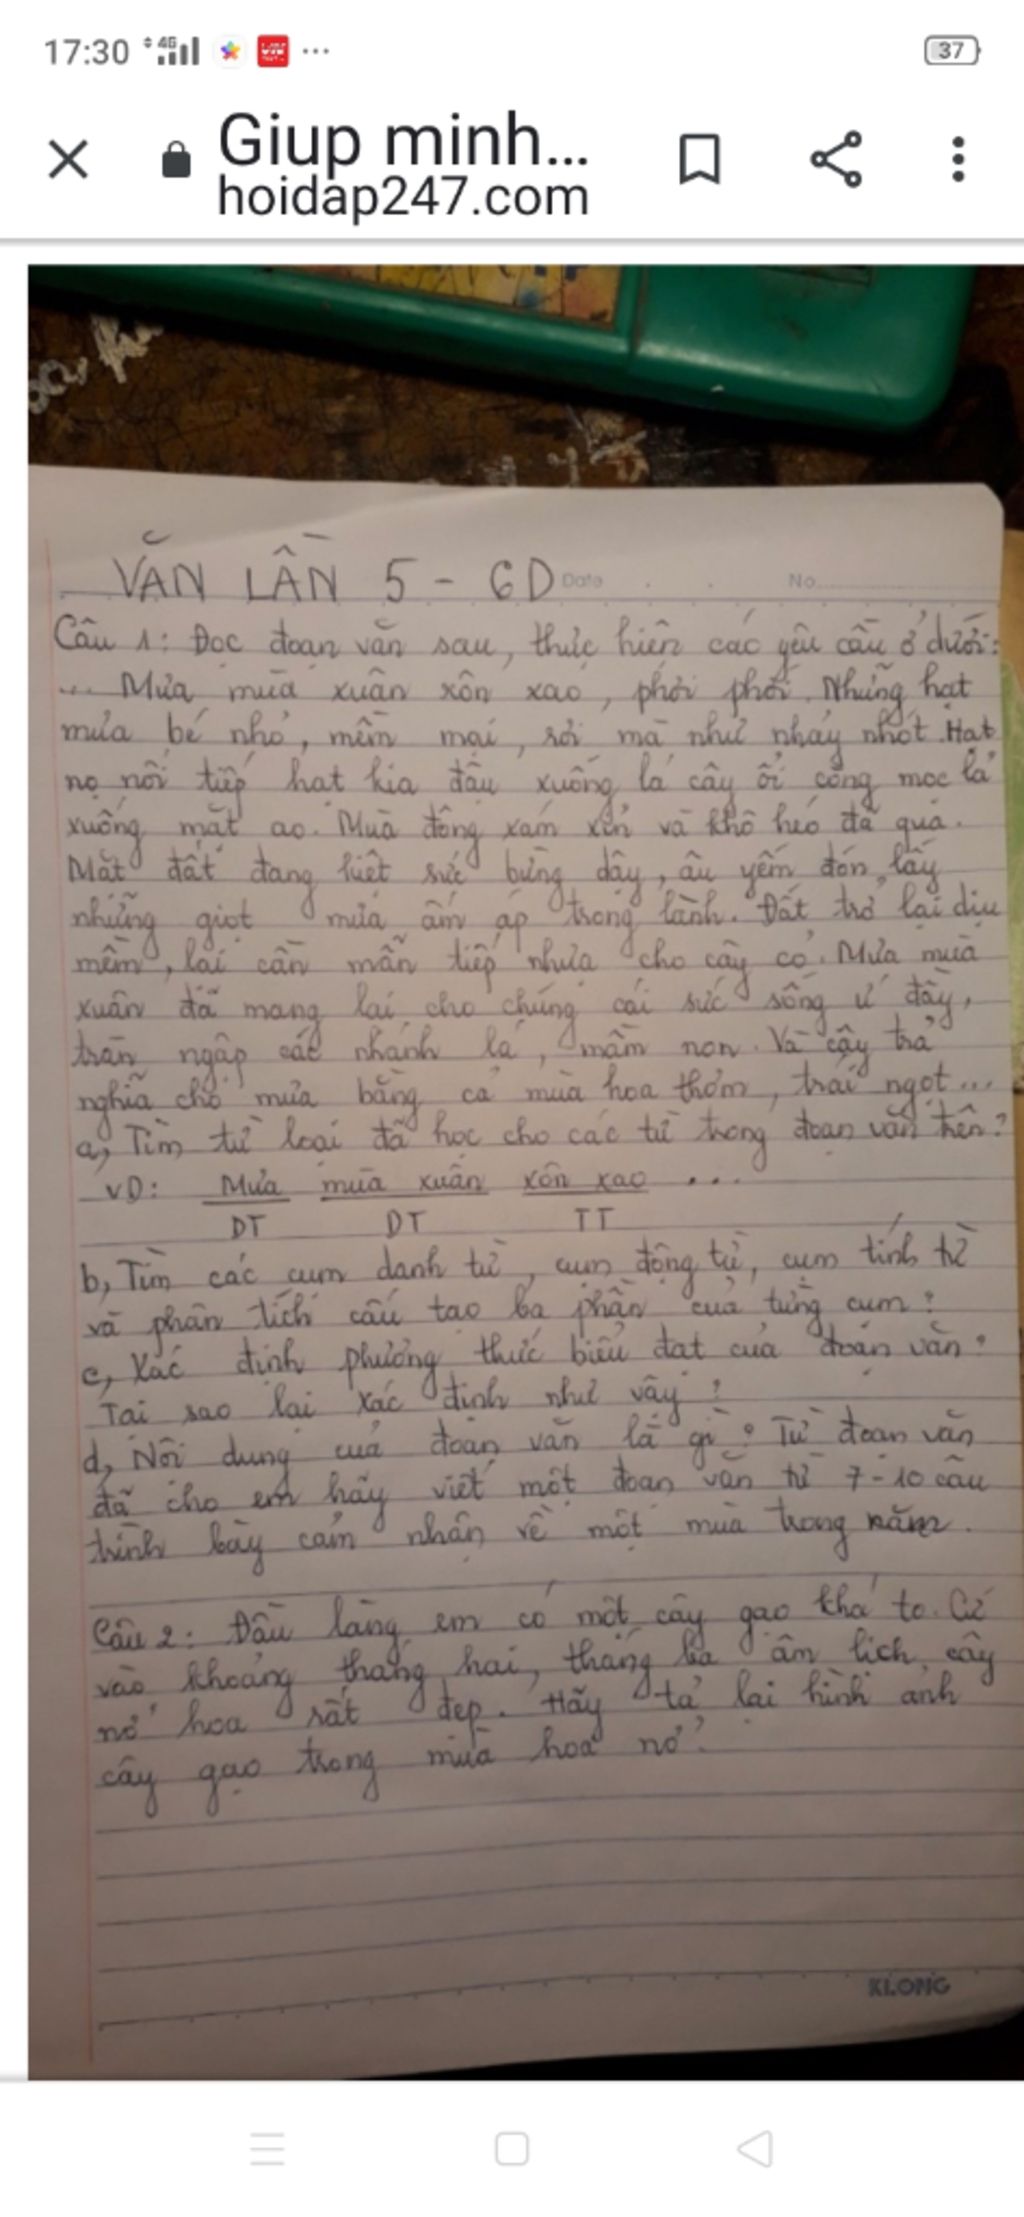 17:30 4G 37
Giup minh...
hoidap247.com
VĂN LẦN 5 - 6D Date No
Câu 1: Đọc đoạn văn sau, thực hiện các yêu cầu ở dưới:
... Mưa mùa xuân xôn xao, phơi phới. Những hạt
mưa bé nhỏ, mềm mại, rơi mà như nhảy nhót. Hạt
nọ nối tiếp hạt kia đậu xuống lá cây ổi cong mọc lả
xuống mặt ao. Mùa đông xám xỉn và khô héo đã qua.
Mặt đất đang kiệt sức bừng dậy, âu yếm đón lấy
những giọt mưa ấm áp trong lành. Đất trở lại dịu
mềm, lại cần mẫn tiếp nhựa cho cây cỏ. Mưa mùa
xuân đã mang lại cho chúng cái sức sống ứ đầy,
tràn ngập các nhánh lá, mầm non. Và cây trả
nghĩa cho mưa bằng cả mùa hoa thơm, trái ngọt...
a, Tìm từ loại đã học cho các từ trong đoạn văn trên?
VD: Mưa mùa xuân xôn xao ...
DT DT TT
b, Tìm các cụm danh từ, cụm động từ, cụm tính từ
và phân tích cấu tạo ba phần của từng cụm?
c, Xác định phương thức biểu đạt của đoạn văn?
Tại sao lại xác định như vậy?
d, Nội dung của đoạn văn là gì? Từ đoạn văn
đã cho em hãy viết một đoạn văn từ 7-10 câu
trình bày cảm nhận về một mùa trong năm.
Câu 2: Đầu làng em có một cây gạo khá to. Cứ
vào khoảng tháng hai, tháng ba âm lịch, cây
nở hoa rất đẹp. Hãy tả lại hình ảnh
cây gạo trong mùa hoa nở.
KLONG